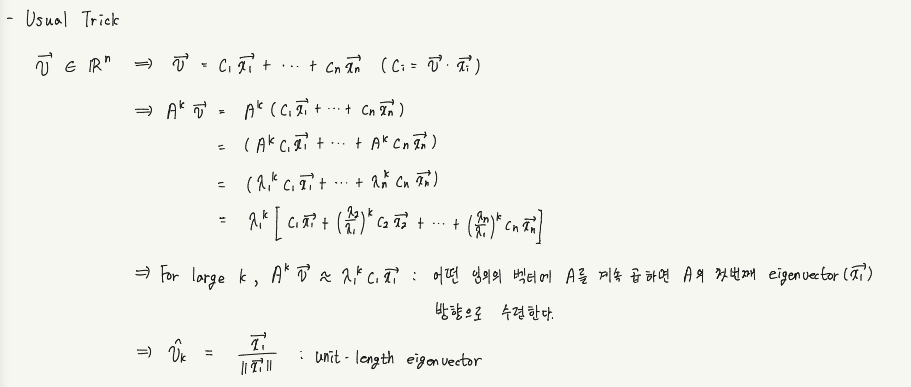 - Usual Trick
v⃗ ∈ ℝⁿ ⇒ v⃗ = c₁x⃗₁ + ⋯ + cₙx⃗ₙ (cᵢ = v⃗ · x⃗ᵢ)
⇒ Aᵏ v⃗ = Aᵏ (c₁x⃗₁ + ⋯ + cₙx⃗ₙ)
= (Aᵏ c₁x⃗₁ + ⋯ + Aᵏ cₙx⃗ₙ)
= (λ₁ᵏ c₁x⃗₁ + ⋯ + λₙᵏ cₙx⃗ₙ)
= λ₁ᵏ [c₁x⃗₁ + (λ₂/λ₁)ᵏ c₂x⃗₂ + ⋯ + (λₙ/λ₁)ᵏ cₙx⃗ₙ]
⇒ For large k, Aᵏ v⃗ ≈ λ₁ᵏ c₁x⃗₁ : 어떤 임의의 벡터에 A를 계속 곱하면 A의 첫번째 eigenvector(x⃗₁)
방향으로 수렴한다.
⇒ v̂ₖ = x⃗₁/||x⃗₁|| : unit-length eigenvector